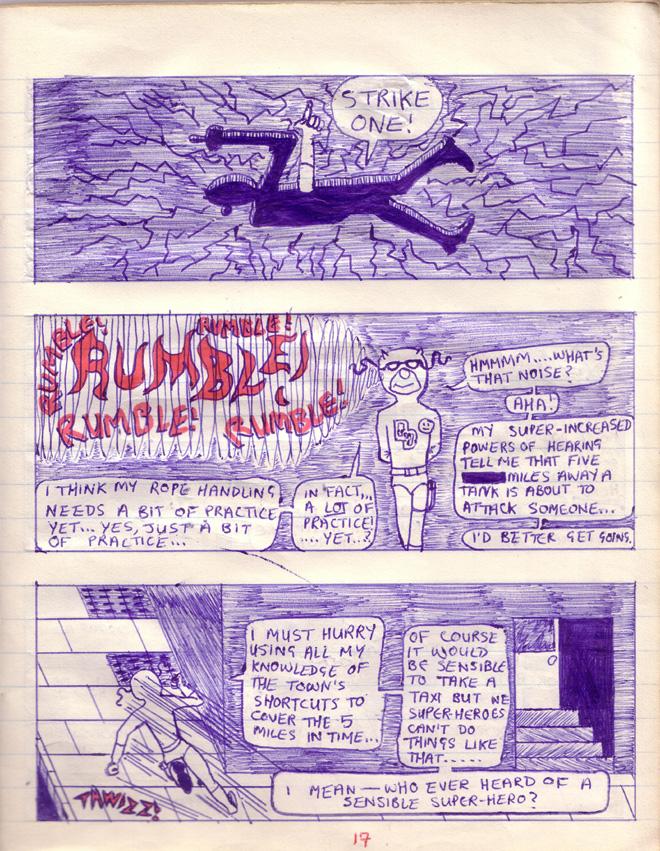 STRIKE
ONE!
RUMBLE!
RUMBLE!
RUMBLE!
RUMBLE!
RUMBLE!
HMMMMM....WHAT'S
THAT NOISE?
AHA!
MY SUPER-INCREASED
POWERS OF HEARING
TELL ME THAT FIVE
MILES AWAY A
TANK IS ABOUT TO
ATTACK SOMEONE...
I'D BETTER GET GOING.
I THINK MY ROPE HANDLING
NEEDS A BIT OF PRACTICE
YET... YES, JUST A BIT
OF PRACTICE...
IN FACT,..
A LOT OF
PRACTICE!
....YET..?
I MUST HURRY
USING ALL MY
KNOWLEDGE OF
THE TOWN'S
SHORTCUTS TO
COVER THE 5
MILES IN TIME...
OF COURSE
IT WOULD
BE SENSIBLE
TO TAKE A
TAXI BUT WE
SUPER-HEROES
CAN'T DO
THINGS LIKE
THAT.....
I MEAN — WHO EVER HEARD OF A
SENSIBLE SUPER-HERO?
17